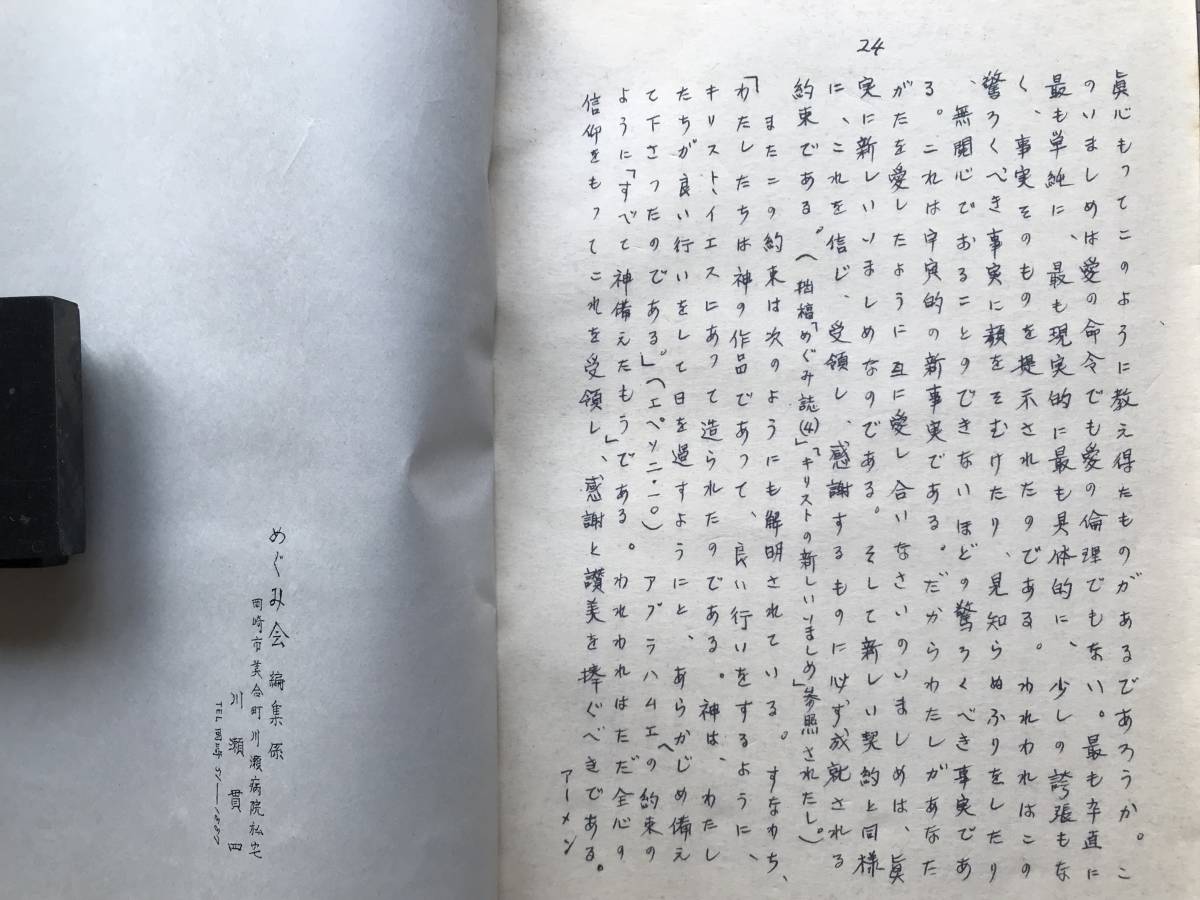 24
眞心もってこのように教え得たものがあるであろうか。こ
のいましめは愛の命令でも愛の倫理でもない。最も卒直に
最も単純に、最も現実的に最も具体的に、少しの誇張もな
く、事実そのものを提示されたのである。われわれはこの
驚ろくべき事実に顔をそむけたり、見知らぬふりをしたり
、無関心でおることのできないほどの驚ろくべき事実であ
る。これは宇宙的の新事実である。だからわたしがあなた
がたを愛したように互に愛し合いなさいのいましめは、眞
実に新しいいましめなのである。そして新しい契約と同様
に、これを信じ、受領し、感謝するものに必ず成就される
約束である。(拙稿「めぐみ誌(4)」「キリストの新しいいましめ」参照されたし。)
またこの約束は次のようにも解明されている。すなわち、
「わたしたちは神の作品であって、良い行いをするように、
キリスト・イエスにあって造られたのである。神は、わたし
たちが良い行いをして日を過すようにと、あらかじめ備え
て下さったのである。」(エペソ二・一〇)アブラハムエの約束の
ように「すべて神備えたもう」である。われわれはただ全心の
信仰をもってこれを受領し、感謝と讃美を捧ぐべきである。
アーメン
めぐみ会 編集係
岡崎市美合町 川瀬病院私宅
川瀬貫四
TEL 岡崎